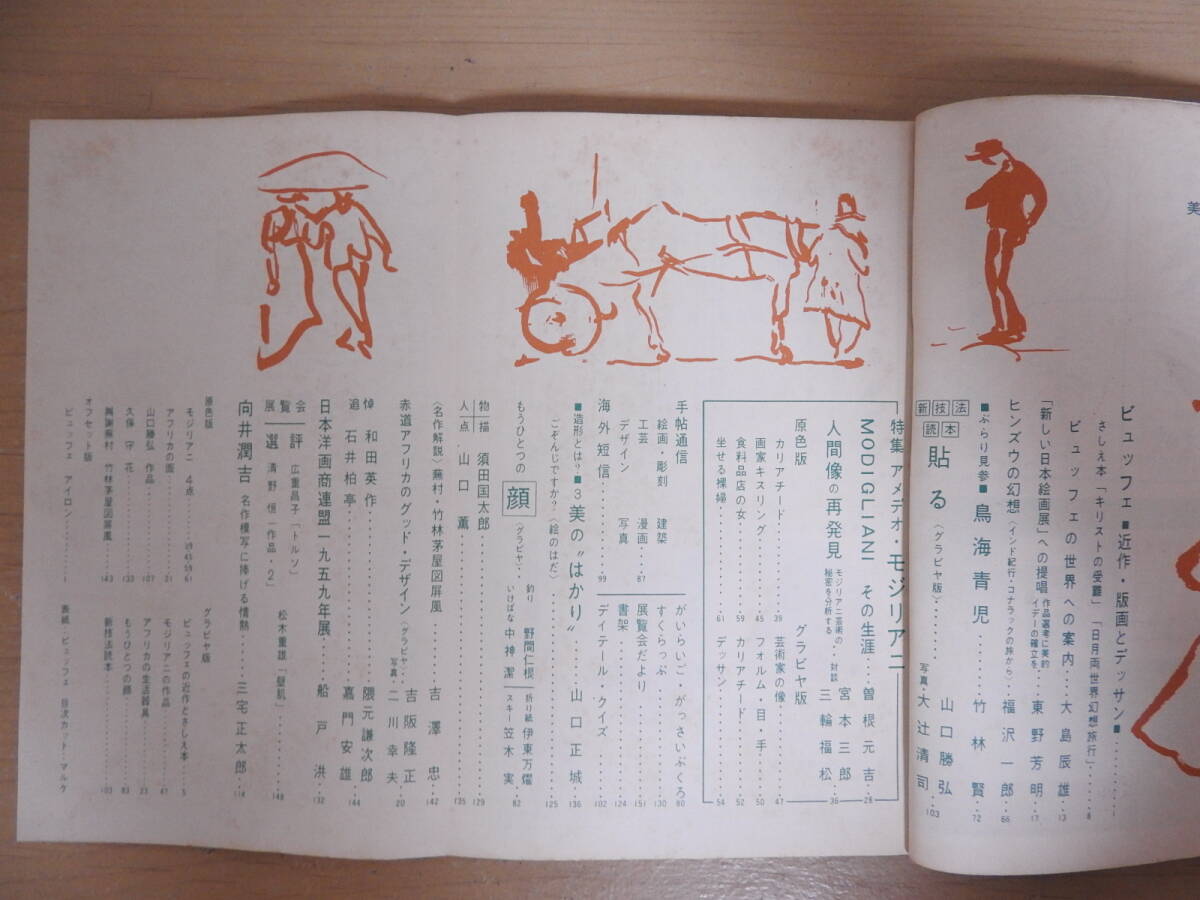 美
ビュッフェ■近作・版画とデッサン■‥‥‥1
さしえ本「キリストの受難」「日月両世界幻想旅行」‥8
ビュッフェの世界への案内‥大島辰雄‥13
「新しい日本絵画展」への提唱 作品選考に美的イデーの確立を 東野芳明‥17
ヒンズウの幻想〈インド紀行・コナラックの旅から〉福沢一郎‥66
■ぶらり見参■鳥海青児‥‥竹林賢‥72
新技法読本 貼る〈グラビヤ版〉‥‥山口勝弘 写真 大辻清司‥103
特集 アメデオ・モジリアニ
MODIGLIANI その生涯‥曽根元吉‥28
人間像の再発見 モジリアニ芸術の秘密を分析する‥対談 宮本三郎 三輪福松‥36
原色版
カリアチード‥‥39
画家キスリング‥‥45
食料品店の女‥‥59
坐せる裸婦‥‥61
グラビヤ版
芸術家の像‥‥47
フォルム・目・手‥‥50
カリアチード‥‥52
デッサン‥‥54
手帖通信
絵画・彫刻 建築
工芸 漫画‥87
デザイン 写真
海外短信‥‥99
がいらいご・がっさいぶくろ 80
すくらっぷ‥‥130
展覧会だより‥‥151
書架‥‥124
デイテール・クイズ‥‥102
■造形とは?■3 美の"はかり"‥‥山口正城‥136
ごぞんじですか?〈絵のはだ〉‥‥125
もうひとつの 顔〈グラビヤ〉‥ 釣り 野間仁根 いけばな 中神潔 折り紙 伊東万燿 スキー 笠木実‥82
物描 須田国太郎‥‥129
人点 山口薫‥‥135
〈名作解説〉蕪村・竹林茅屋図屏風‥‥吉澤忠‥142
赤道アフリカのグッド・デザイン〈グラビヤ〉‥吉阪隆正 写真 二川幸夫‥20
追悼 和田英作‥‥隈元謙次郎
石井柏亭‥‥嘉門安雄‥144
日本洋画商連盟一九五九年展‥‥船戸洪‥132
展覧会評選 広重昌子「トルソ」 清野恒「作品・2」 松木重雄「髪肌」‥‥148
向井潤吉 名作模写に捧げる情熱‥‥三宅正太郎‥114
原色版
モジリアニ 4点‥‥39 45 59 61
アフリカの面‥‥21
山口勝弘 作品‥‥107
久保守 花‥‥133
与謝蕪村 竹林茅屋図屏風‥‥143
オフセット版
ビュッフェ アイロン‥‥1
グラビヤ版
ビュッフェの近作とさしえ本‥‥5
モジリアニの作品‥‥47
アフリカの生活器具‥‥23
もうひとつの顔‥‥83
新技法読本‥‥103
表紙・ビュッフェ 目次カット・マルケ